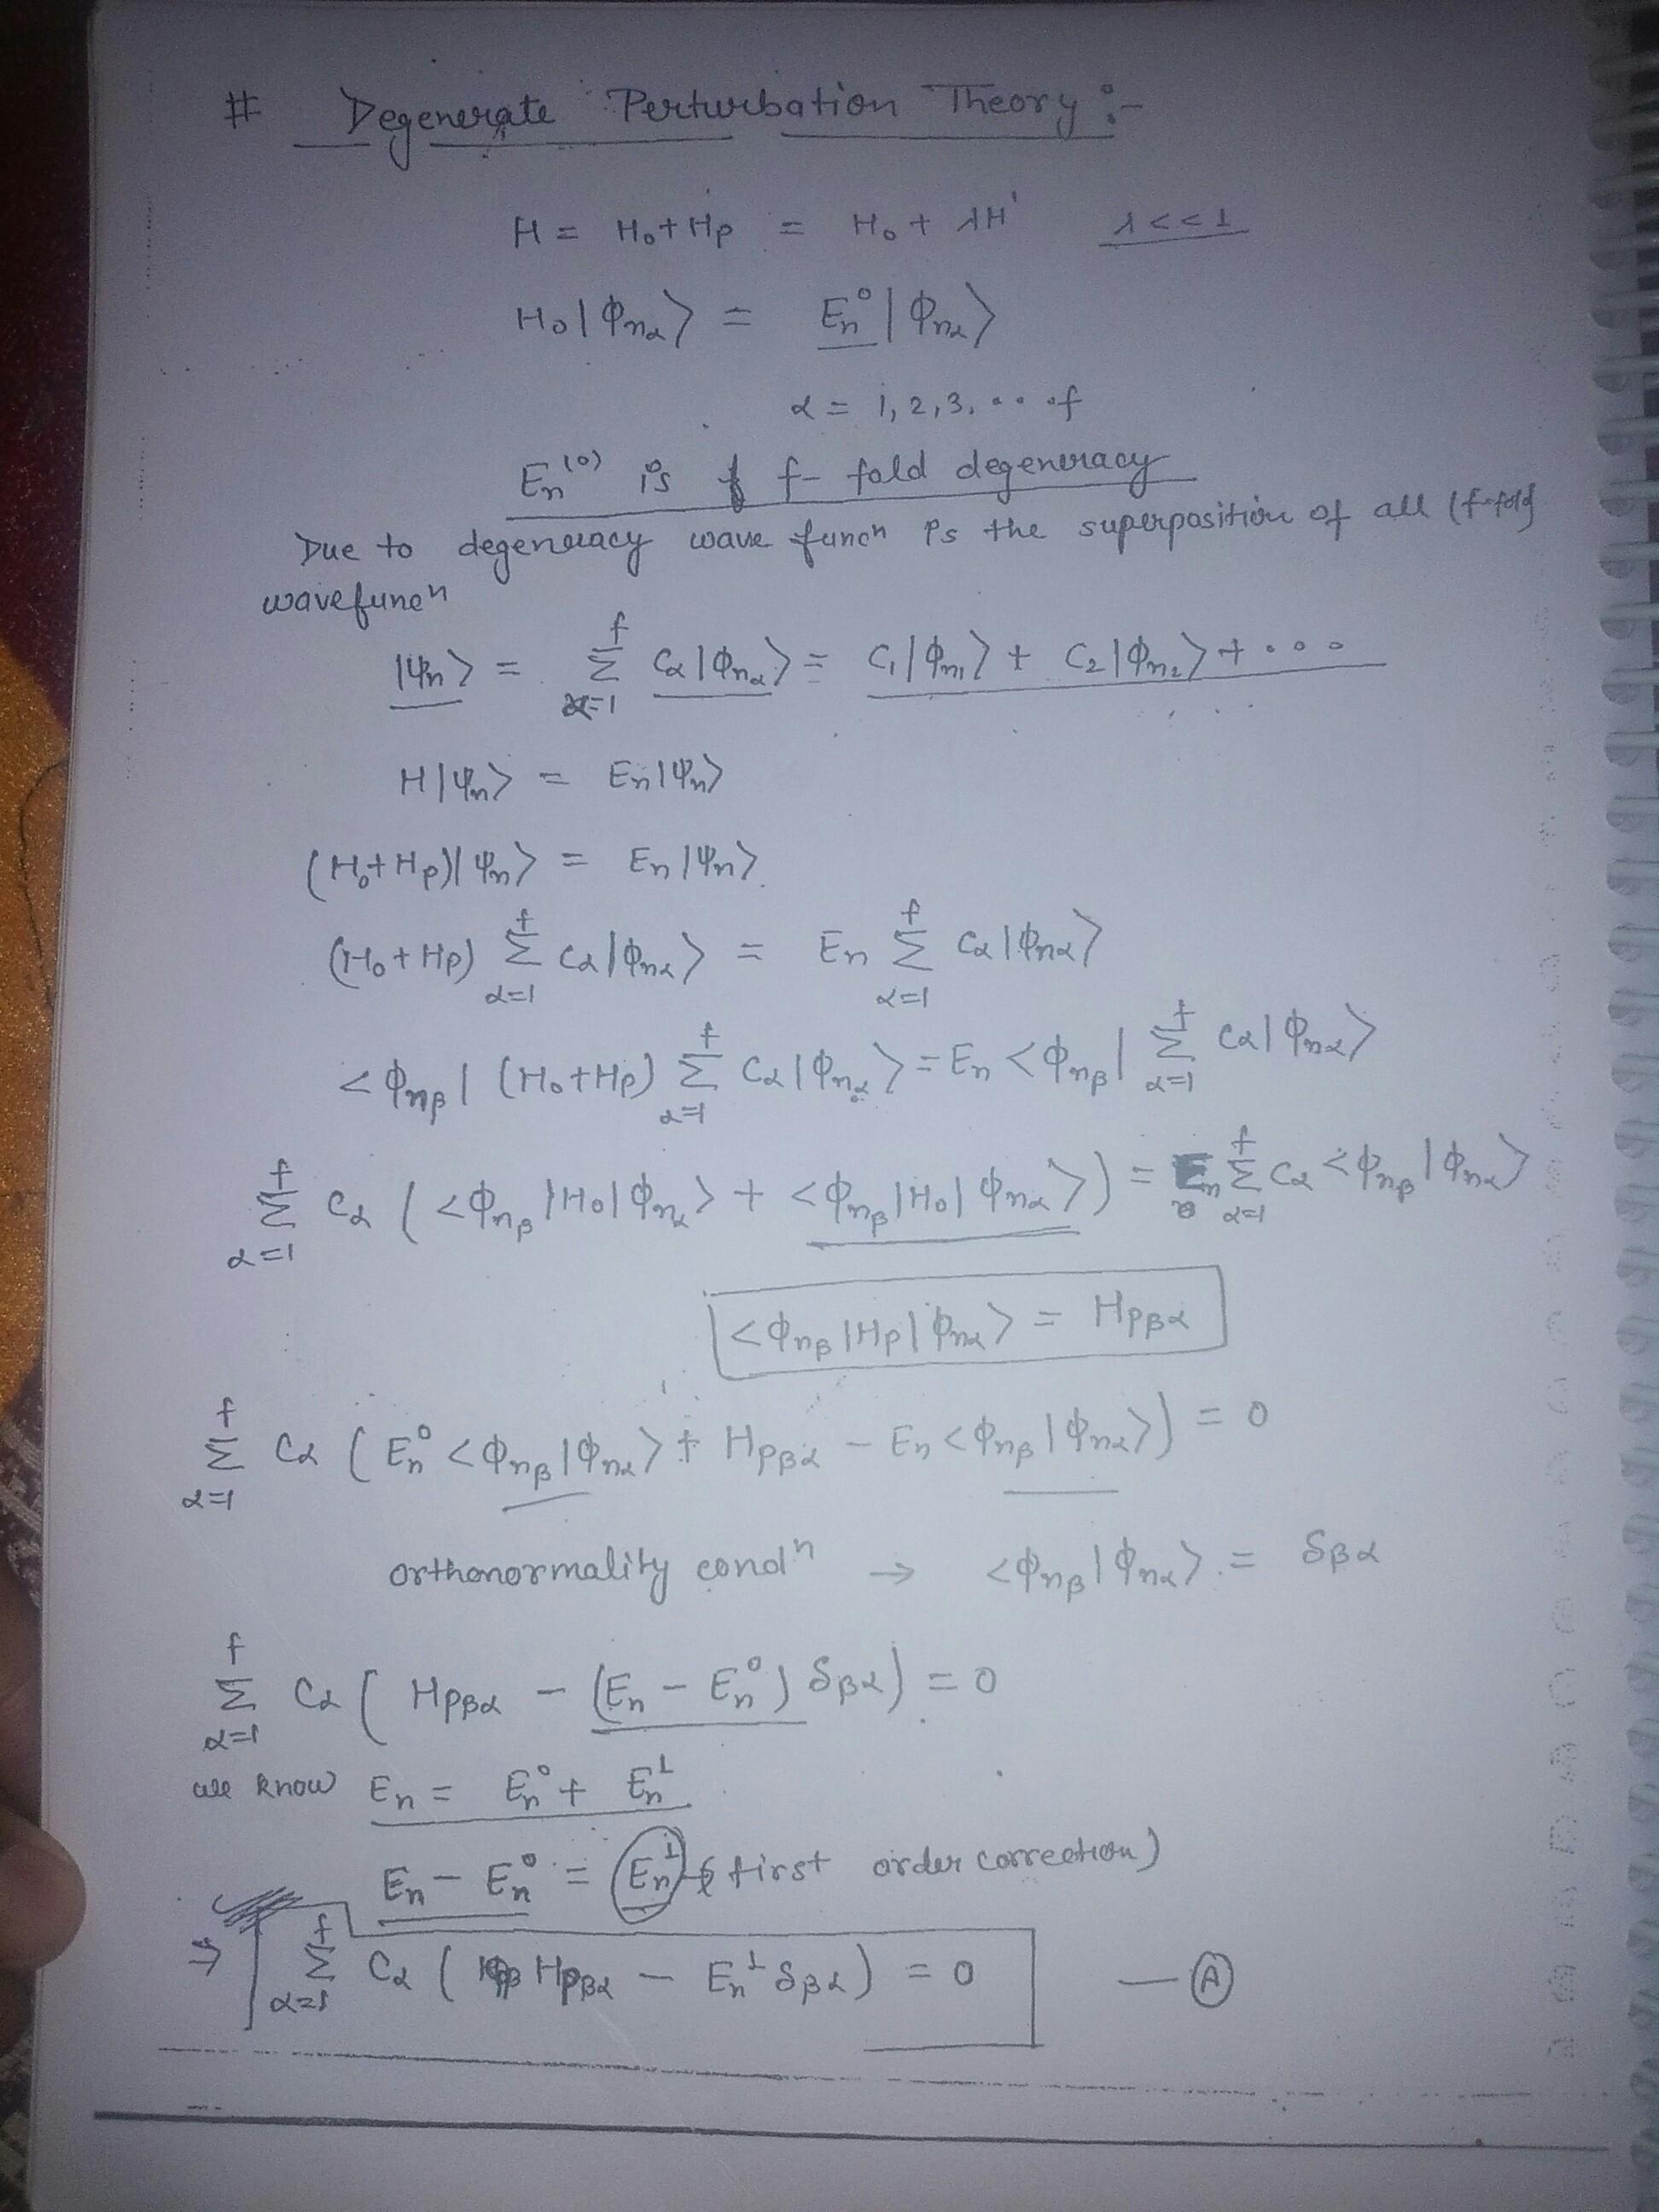 # Degenerate Perturbation Theory :-
H = H₀ + Hp = H₀ + λH' λ<<1
H₀|Φnα> = En⁰|Φnα>
α = 1, 2, 3, ... f
En⁽⁰⁾ is f- fold degeneracy
Due to degeneracy wave funcn is the superposition of all (f-fold
wavefuncⁿ
|Ψn> = Σ_{α=1}^{f} Cα|Φnα> = C₁|Φn₁> + C₂|Φn₂> + ...
H|Ψn> = En|Ψn>
(H₀+Hp)|Ψn> = En|Ψn>
(H₀+Hp) Σ_{α=1}^{f} Cα|Φnα> = En Σ_{α=1}^{f} Cα|Φnα>
<Φnβ| (H₀+Hp) Σ_{α=1}^{f} Cα|Φnα> = En <Φnβ| Σ_{α=1}^{f} Cα|Φnα>
Σ_{α=1}^{f} Cα (<Φnβ|H₀|Φnα> + <Φnβ|H₀|Φnα>) = En Σ_{α=1}^{f} Cα <Φnβ|Φnα>
<Φnβ|Hp|Φnα> = Hpβα
Σ_{α=1}^{f} Cα (En⁰ <Φnβ|Φnα> + Hpβα - En <Φnβ|Φnα>) = 0
orthonormality condⁿ → <Φnβ|Φnα> = δβα
Σ_{α=1}^{f} Cα (Hpβα - (En - En⁰) δβα) = 0
we know En = En⁰ + En¹
En - En⁰ = En¹ ( first order correction)
⇒ Σ_{α=1}^{f} Cα (Hpβα - En¹ δβα) = 0 — Ⓐ